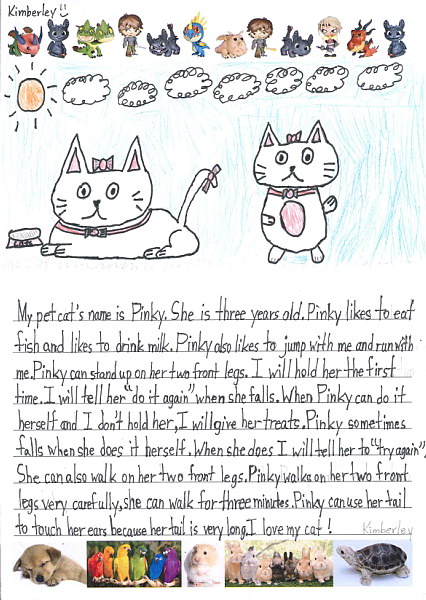 Kimberley
My pet cat's name is Pinky. She is three years old. Pinky likes to eat
fish and likes to drink milk. Pinky also likes to jump with me and run with
me. Pinky can stand up on her two front legs. I will hold her the first
time. I will tell her "do it again" when she falls. When Pinky can do it
herself and I don't hold her, I will give her treats. Pinky sometimes
falls when she does it herself. When she does I will tell her to "try again".
She can also walk on her two front legs. Pinky walks on her two front
legs very carefully, she can walk for three minutes. Pinky can use her tail
to touch her ears because her tail is very long. I love my cat!
Kimberley